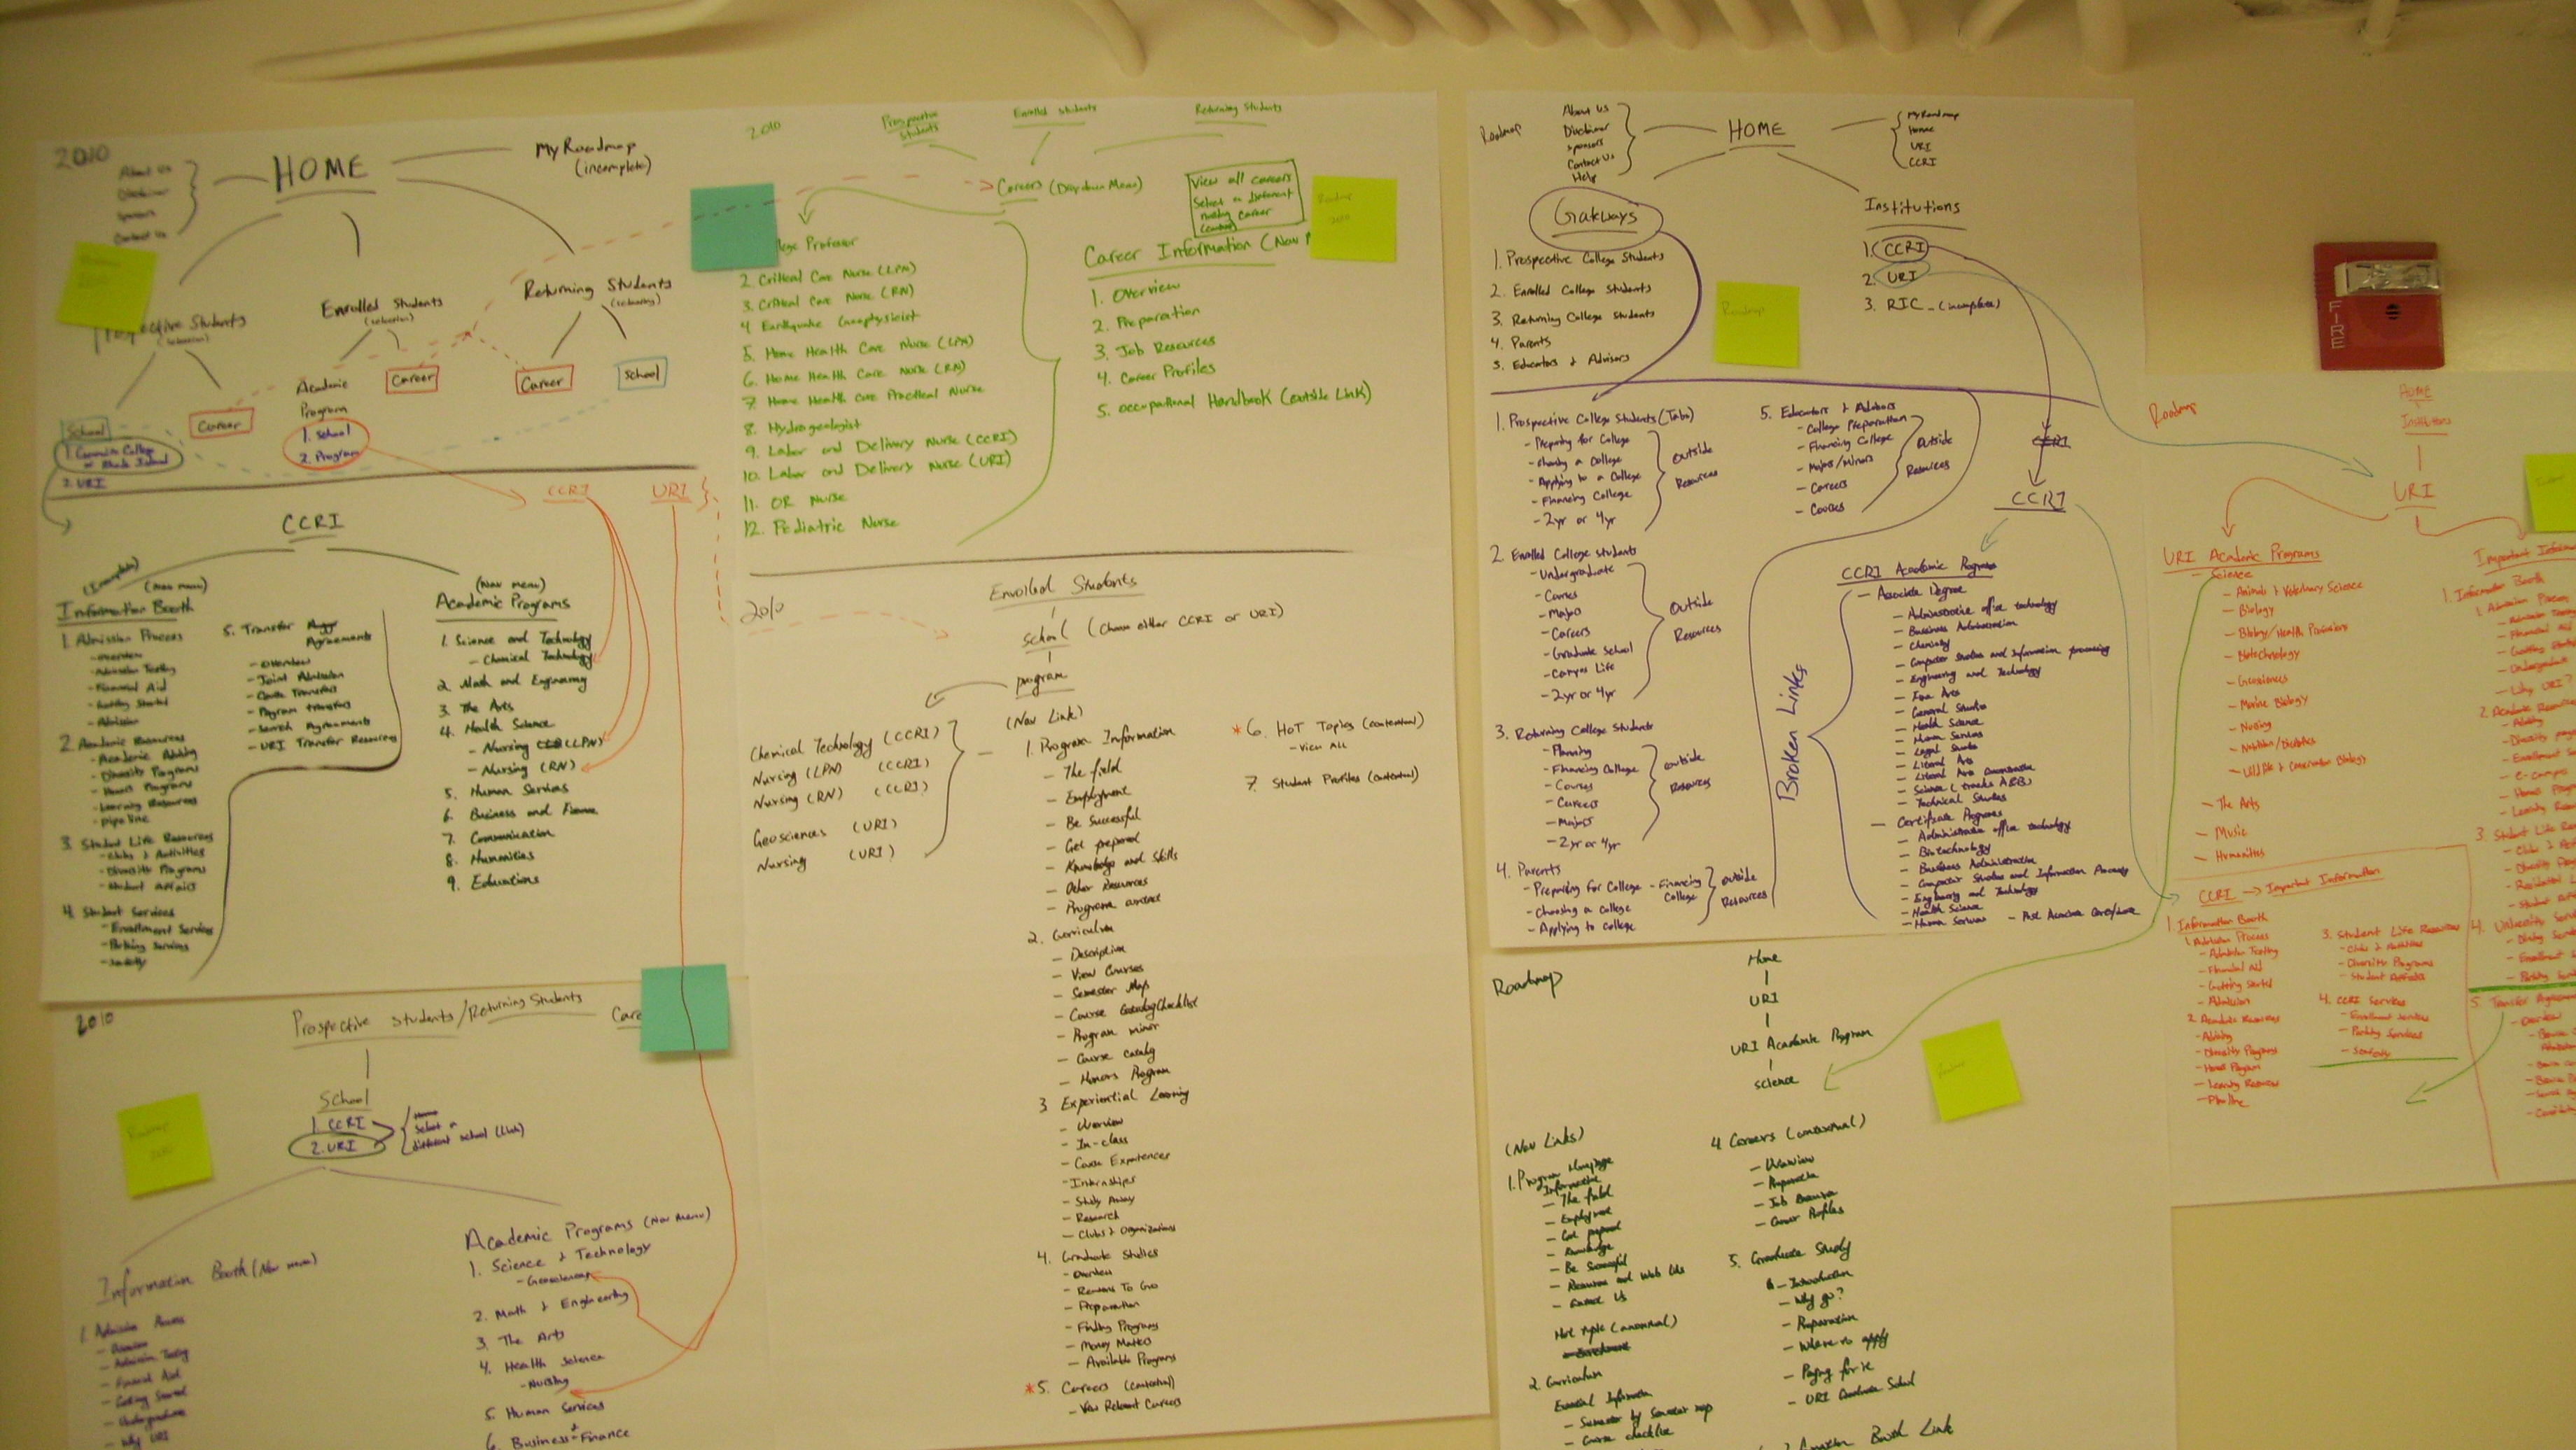 2010
About Us
Disclaimer
Sponsors
Contact Us
HOME
MyRoadmap
(incomplete)
Prospective Students
Enrolled Students
Returning Students
School
1. Community College
of Rhode Island
2. URI
Career
Academic
Program
1. School
2. Program
Career
Career
School
CCRI
CCRI
URI
(Incomplete)
(Nav menu)
Information Booth
1. Admission Process
- Overview
- Admission Testing
- Financial Aid
- Getting Started
- Admission
2. Academic Resources
- Academic Advising
- Diversity Programs
- Honors Programs
- Learning Resources
- pipeline
3. Student Life Resources
- Clubs & Activities
- Diversity Programs
- Student Affairs
4. Student Services
- Enrollment Services
- Parking Services
5. Transfer
Agreements
- Overview
- Joint Admission
- Course Transfers
- Program transfers
- Search Agreements
- URI Transfer Resources
(Nav menu)
Academic Programs
1. Science and Technology
- Chemical Technology
2. Math and Engineering
3. The Arts
4. Health Science
- Nursing (LPN)
- Nursing (RN)
5. Human Services
6. Business and Finance
7. Communication
8. Humanities
9. Educations
2010
Prospective Students/Returning Students
School
1. CCRI
2. URI
Select a
different school (Link)
Information Booth (Nav menu)
1. Admission Process
- Overview
- Admission Testing
- Financial Aid
- Getting Started
- Undergraduate
- Why URI
Academic Programs (Nav menu)
1. Science & Technology
- Geosciences
2. Math & Engineering
3. The Arts
4. Health Science
- Nursing
5. Human Services
6. Business + Finance
2010
Prospective
Students
Enrolled Students
Returning Students
Careers (Dropdown Menu)
View all careers
Select a different
nursing career
Roadmap
2010
lege Professor
2. Critical Care Nurse (LPN)
3. Critical Care Nurse (RN)
4. Earthquake Geophysicist
5. Home Health Care Nurse (LPN)
6. Home Health Care Nurse (RN)
7. Home Health Care Practical Nurse
8. Hydrogeologist
9. Labor and Delivery Nurse (CCRI)
10. Labor and Delivery Nurse (URI)
11. OR Nurse
12. Pediatric Nurse
Career Information (Nav
1. Overview
2. Preparation
3. Job Resources
4. Career Profiles
5. Occupational Handbook (outside Link)
2010
Enrolled Students
School (Choose either CCRI or URI)
program
Chemical Technology (CCRI)
Nursing (LPN) (CCRI)
Nursing (RN) (CCRI)
Geosciences (URI)
Nursing (URI)
(Nav Link)
1. Program Information
- The field
- Employment
- Be Successful
- Get prepared
- Knowledge and Skills
- Other Resources
- Program contact
2. Curriculum
- Description
- View Courses
- Semester Map
- Course Checklist
- Program minor
- Course catalog
- Honors Program
3. Experiential Learning
- Overview
- In-class
- Course Experiences
- Internships
- Study Away
- Research
- Clubs & Organizations
4. Graduate Studies
- Overview
- Reasons To Go
- Preparation
- Finding Programs
- Money Matters
- Available Programs
* 5. Careers (contextual)
- View Relevant Careers
* 6. HoT Topics (contextual)
- View All
7. Student Profiles (contextual)
Roadmap
About Us
Disclaimer
Sponsors
Contact Us
Help
HOME
MyRoadmap
Home
URI
CCRI
Gateways
1. Prospective College Students
2. Enrolled College Students
3. Returning College Students
4. Parents
5. Educators & Advisors
Institutions
1. CCRI
2. URI
3. RIC - (incomplete)
Roadmap
1. Prospective College Students (Tabs)
- Preparing for College
- Choosing a College
- Applying to a College
- Financing College
- 2yr or 4yr
Outside
Resources
2. Enrolled College Students
- Undergraduate
- Courses
- Majors
- Careers
- Graduate School
- Campus Life
- 2yr or 4yr
Outside
Resources
3. Returning College Students
- Planning
- Financing College
- Courses
- Careers
- Majors
- 2yr or 4yr
Outside
Resources
4. Parents
- Preparing for College - Financing College
- Choosing a College
- Applying to college
Outside
Resources
5. Educators & Advisors
- College Preparation
- Financing College
- Majors/Minors
- Careers
- Courses
Outside
Resources
Broken Links
CCRI
CCRI
CCRI Academic Programs
- Associate Degree
- Administrative office technology
- Business Administration
- Chemistry
- Computer Studies and Information processing
- Engineering and Technology
- Fine Arts
- General Studies
- Health Science
- Human Services
- Legal Studies
- Liberal Arts
- Science (tracks A&B)
- Technical Studies
- Certificate Programs
- Administrative office technology
- Biotechnology
- Business Administration
- Computer Studies and Information Processing
- Engineering and Technology
- Health Science
- Human Services
Roadmap
Home
URI
URI Academic Program
science
(Nav Links)
1. Program
Information
- The field
- Employment
- Get prepared
- Knowledge
- Be Successful
- Resources and Web Links
- Contact Us
Hot Topic (contextual)
2. Curriculum
Essential Information
- Semester by Semester map
- Course checklist
4 Careers (contextual)
- Overview
- Preparation
- Job Resources
- Career Profiles
5. Graduate Study
- Introduction
- Why go?
- Preparation
- Where to apply
- Paying for it
- URI Graduate School
Information Booth Link
FIRE
Roadmap
HOME
Institutions
URI
URI Academic Programs
- Science
- Animal & Veterinary Science
- Biology
- Biology/Health Professions
- Biotechnology
- Geosciences
- Marine Biology
- Nursing
- Nutrition/Dietetics
- Wildlife & Conservation Biology
- The Arts
- Music
- Humanities
CCRI → Important Information
1. Information Booth
1. Admission Process
- Admission Testing
- Financial Aid
- Getting Started
- Admission
2. Academic Resources
- Advising
- Diversity Programs
- Honors Program
- Learning Resources
- Pipeline
3. Student Life Resources
- Clubs & Activities
- Diversity Programs
- Student Affairs
4. CCRI Services
- Enrollment Services
- Parking Services
Important Informa
1. Information Booth
1. Admission Process
2. Academic Resources
3. Student Life Res
4. University Servi
5. Transfer Agreeme
- Overview